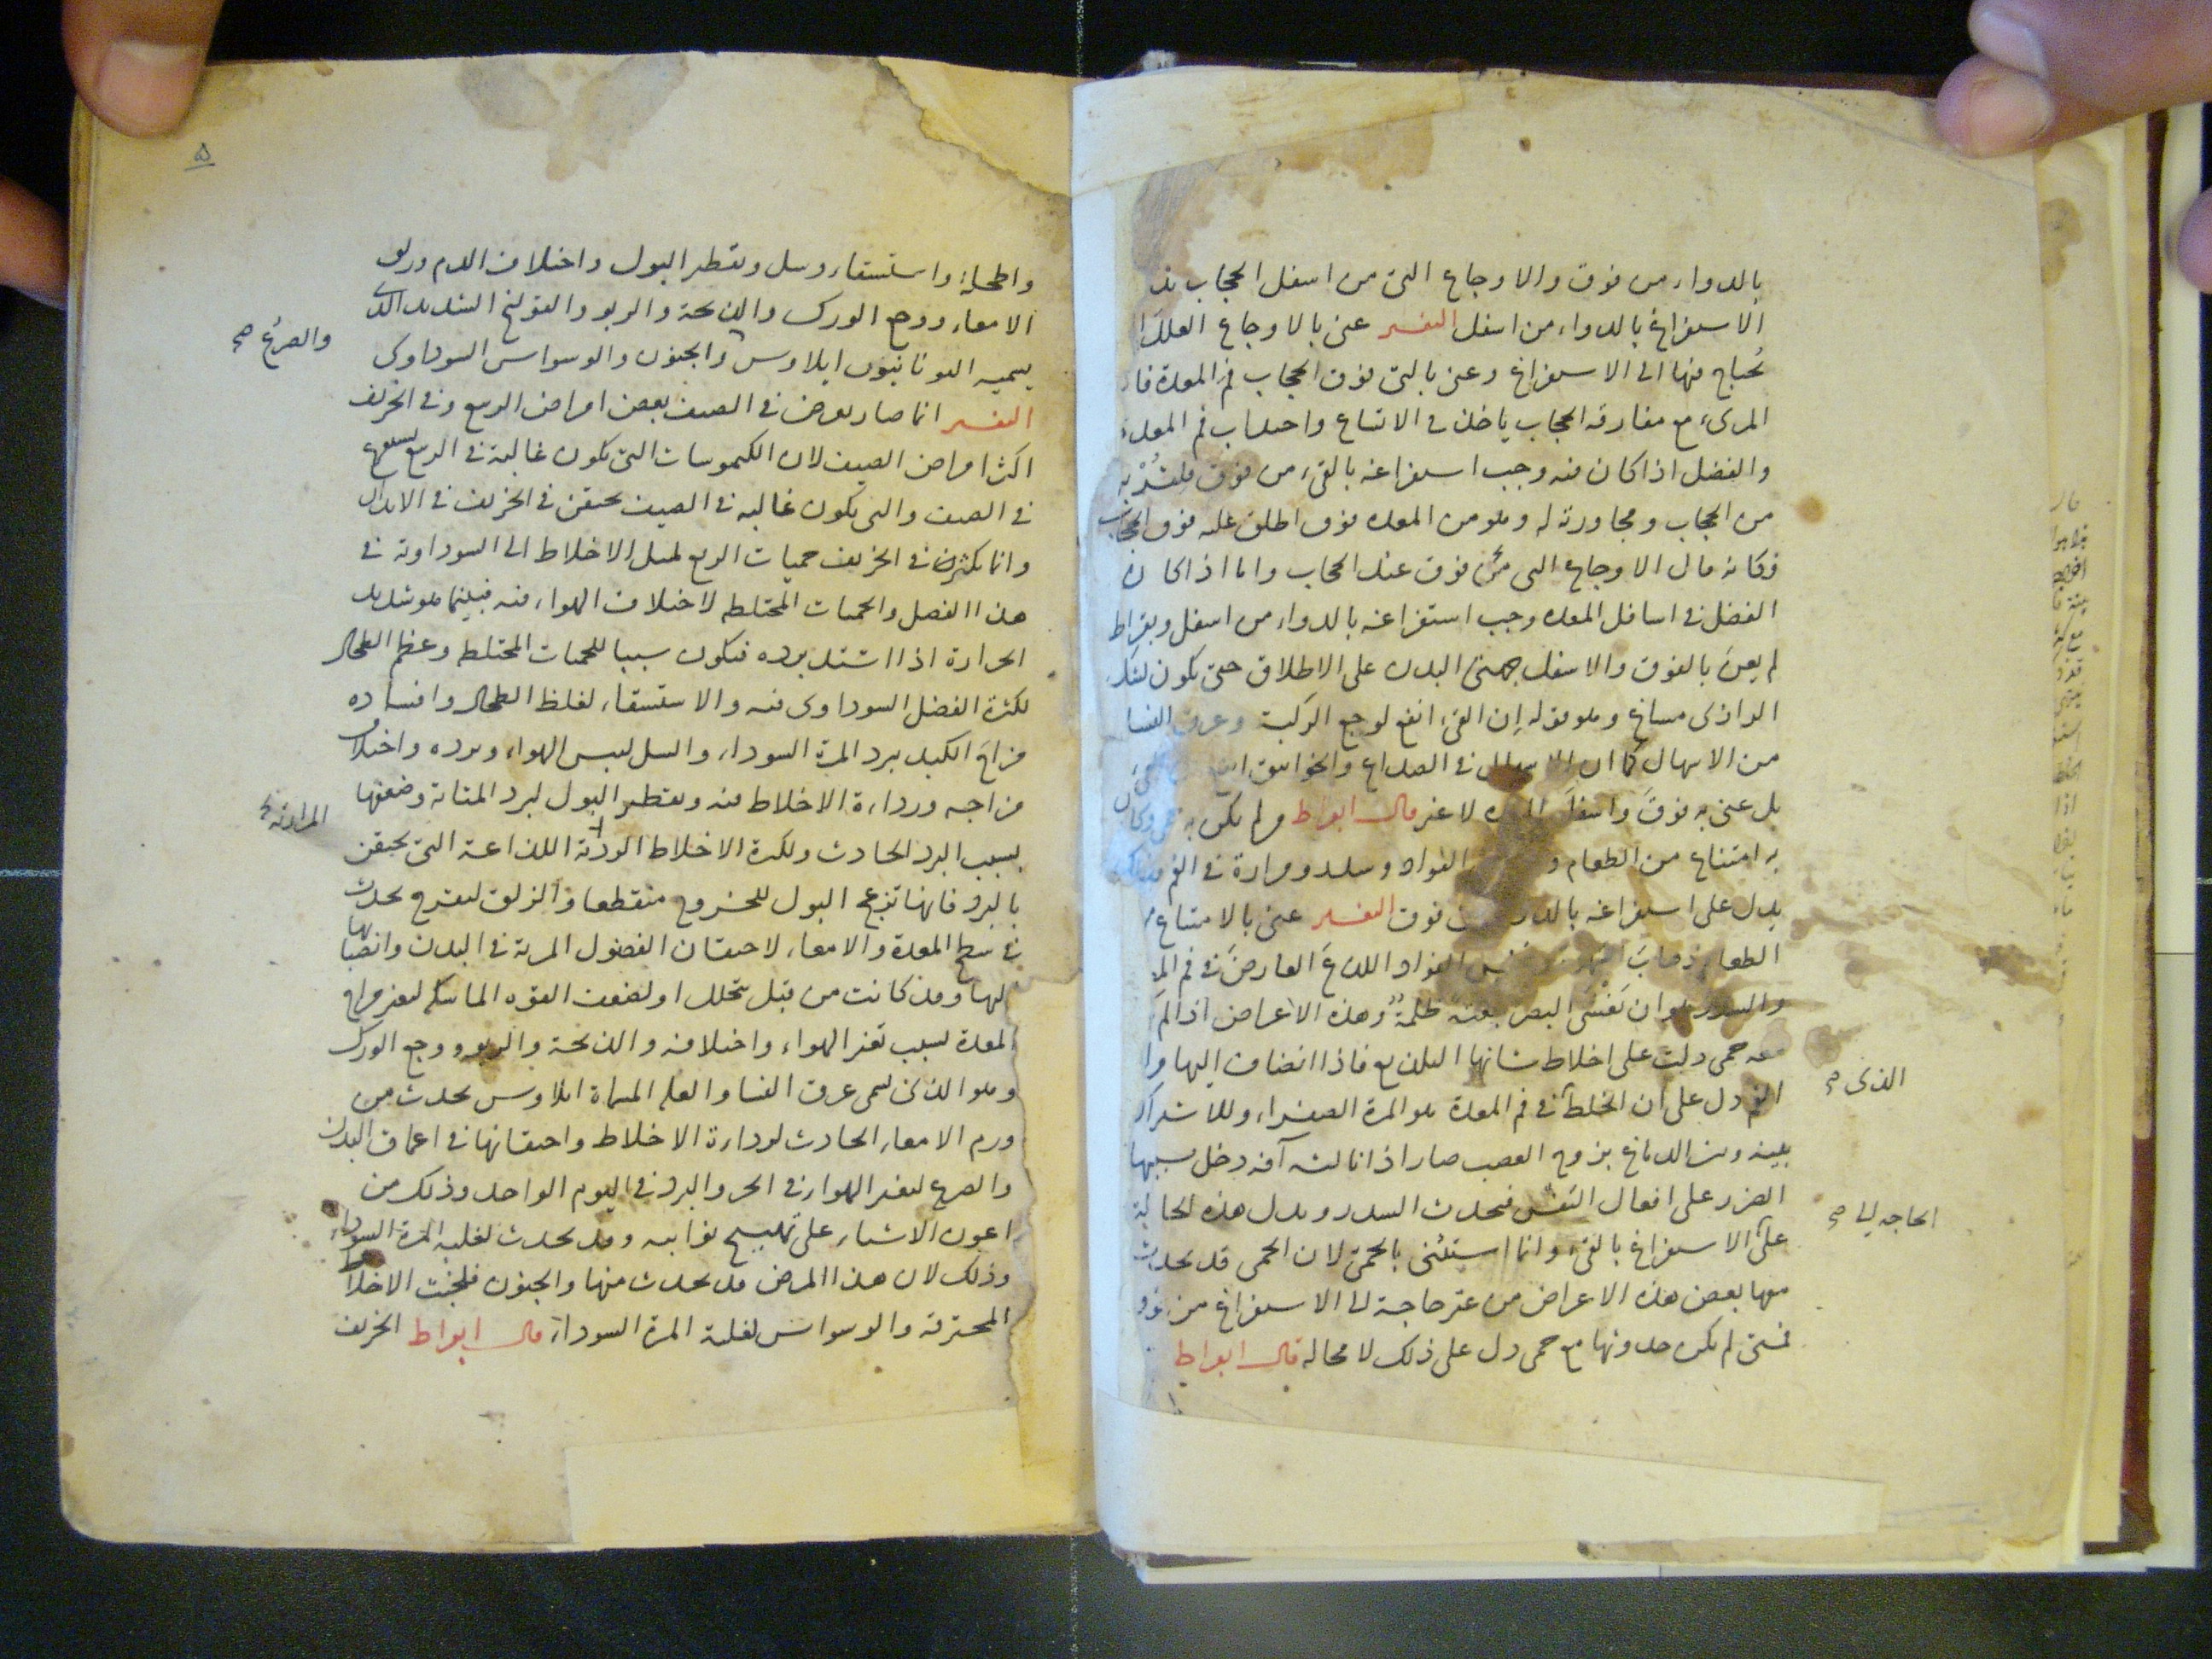 بالدواء من فوق والاوجاع التى من اسفل الحجاب تد
الاستفراغ بالدواء من اسفل التفسير عنى بالاوجاع العلل ا
يُحتاج فيها الى الاستفراغ وعنى بالتى فوق الحجاب فم المعدة فا
المرىء مع مفارقه الحجاب ياخذ فى الاتساع واحداب فم المعدة
والفضل اذا كان فيه وجب استفراغه بالقىء من فوق
من الحجاب ومجاورته له وهو من المعده فوق اطلق عليه فوق الحجاب
فكانه قال الاوجاع التى من فوق عند الحجاب واما اذا كان
الفضل فى اسافل المعده وجب استفراغه بالدواء من اسفل وبقراط
لم يعن بالفوق والاسفل جهتى البدن على الاطلاق حتى يكون لشك
الرازى مساغ وهو قوله إن القىء انفع لوجع الركبة وعرق النسا
من الاسهال كما ان الاسهال فى الصداع والخوانيق
بل عنى به فوق واسفل المعده لا غير قال ابقراط من لم يكن به حمى وكان
به امتناع من الطعام الفواد وسدد ومرارة فى الفم
يدل على استفراغه بالدواء من فوق التفسير عنى بالامتناع من
الطعام ذهاب الفواد اللذع العارض فى فم الم
والسدد هو ان يَغشى البصر بغتة ظلمةٌ وهذه الاعراض اذا لم
معه حمى دلت على اخلاط شانها اللذع فاذا انضاف اليها
الفم دل على ان الخلط فى فم المعدة هو المرة الصفراء وللاشتراك
الذى صح
بينه وبين الدماغ بزوج العصب صار اذا نالته آفه دخل بسببها
الضرر على افعال النفس فيحدث السدر ويدل هذه الحالة
الحاجه الى صح
على الاستفراغ بالقىء وانما استثنى بالحمى لان الحمى قد يحدث
معها بعض هذه الاعراض من غير حاجة الى الاستفراغ من فوق
فمتى لم يكن حدوثها مع حمى دل على ذلك لا محاله قال ابقراط
٥
واطحلة واستسقاء وسل وتقطير البول واختلاف الدم وزلق
الامعاء ووجع الورك والذبحة والربو والقولنج الشديد الذى
والصرع صح
يسميه اليونانيون ايلاوس والجنون والوسواس السوداوى
التفسير انما صار يعرض فى الصيف بعض امراض الربيع وفى الخريف
اكثر امراض الصيف لان الكيموسات التى يكون غالبة فى الربيع
فى الصيف والتى يكون غالبه فى الصيف يحتقن فى الخريف فى الابدان
وانما يكثر فى الخريف حميات الربع لميل الاخلاط الى السوداوية فى
هذا الفصل والحميات المختلطه لاختلاف الهواء فيه فبينما هو شديد
الحرارة اذا اشتد برده فيكون سببا للحميات المختلطه وعظم الطحال
لكثرة الفضل السوداوى فيه والاستسقاء لغلظ الطحال وافساده
مزاج الكبد ببرد المرة السوداء والسل ليبس الهواء وبرده واختلاف
مزاجه ورداءة الاخلاط فيه وتقطير البول لبرد المثانة وضعفها
المراريه
بسبب البرد الحادث ولكثرة الاخلاط الردية اللذاعة التى يحتقن
بالبرد فانها تزعج البول للخروج متقطعا والزلق لتقرح يحدث
فى سطح المعدة والامعاء لاحتقان الفضول المرية فى البدن وانصبابها
اليها وقد كانت من قبل تتحلل او لضعف القوه الماسكه لتغير مزاج
المعدة بسبب تغير الهواء واختلافه والذبحة والربو ووجع الورك
وهو الذى يسمى عرق النسا والعله المسماة ايلاوس يحدث من
ورم الامعاء الحادث لرداءة الاخلاط واحتقانها فى اعماق البدن
والصرع لتغير الهواء فى الحر والبرد فى اليوم الواحد وذلك من
اعون الاشياء على تهييج نوائبه وقد يحدث لغلبه المرة السوداء
وذلك لان هذا المرض قد يحدث منها والجنون فلخبث الاخلاط
المحترقة والوسواس لغلبة المرة السوداء قال ابقراط الخريف